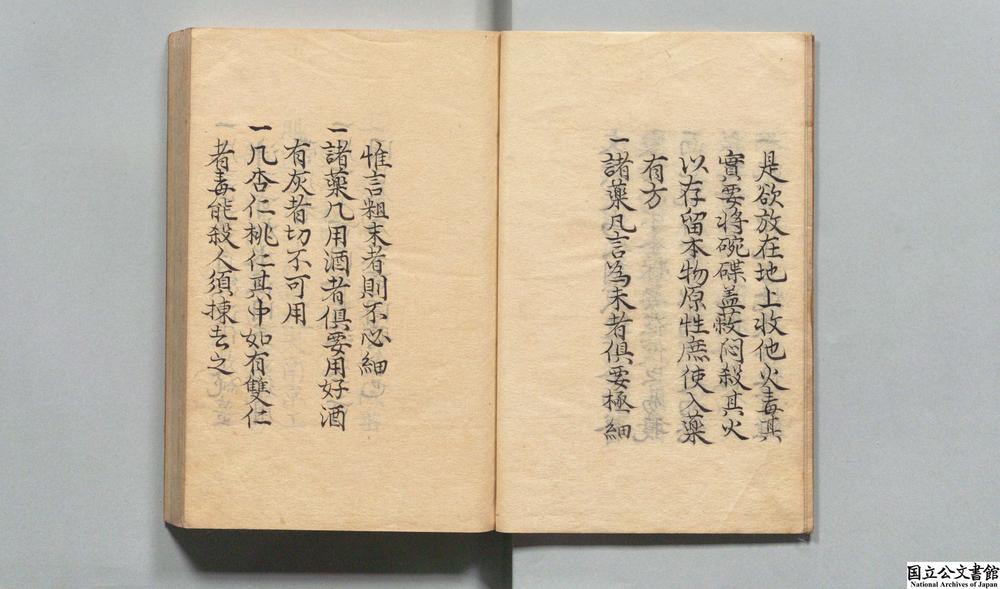 是欲放在地上收他火毒其
實要將碗碟盖救闷殺其火
以存留本物原性庶使入藥
有方
一諸藥凡言為末者俱要極細
惟言粗末者則不必細
一諸藥凡用酒者俱要用好酒
有灰者切不可用
一凡杏仁桃仁其中如有雙仁
者毒能殺人須揀去之
国立公文書館
National Archives of Japan